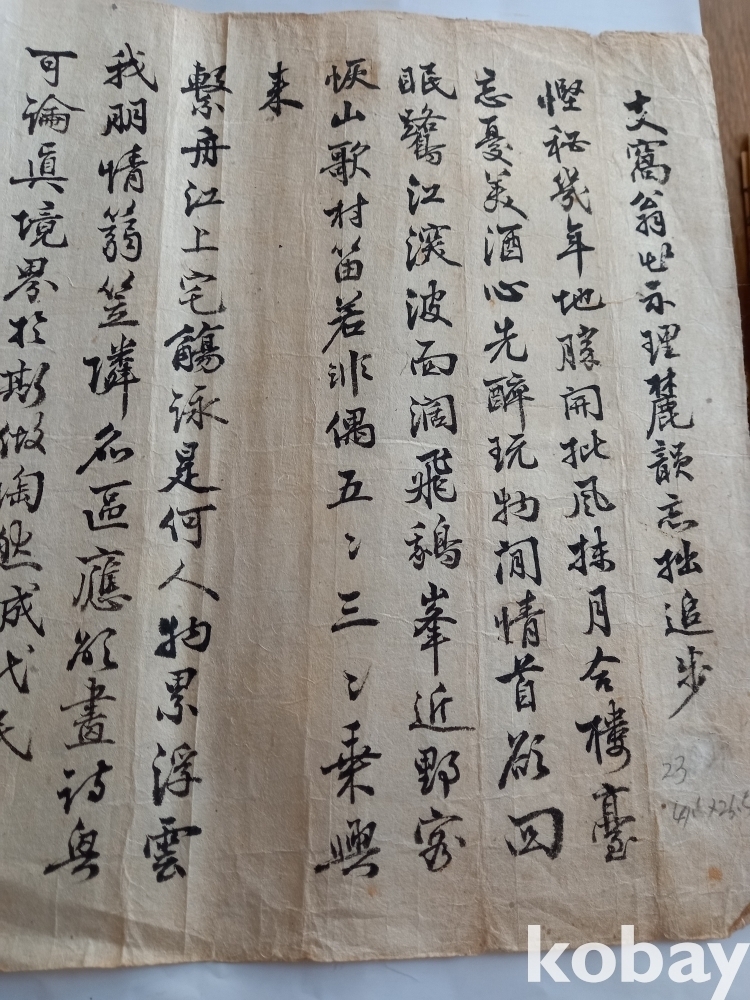 支窩翁出示理麓韻忘拙追步
慳秘幾年地勝開批風抹月合樓臺
忘憂美酒心先醉玩物閒情首欲回
眠鷺江深波面濶飛鵝峯近野客
恢山歌村笛若非偶五〻三〻乘興
来
繫舟江上宅觴詠是何人物累浮雲
我朋情蒻笠隣名區應欲畫詩興
可論眞境界於斯做陶然成戊民
23
kobay